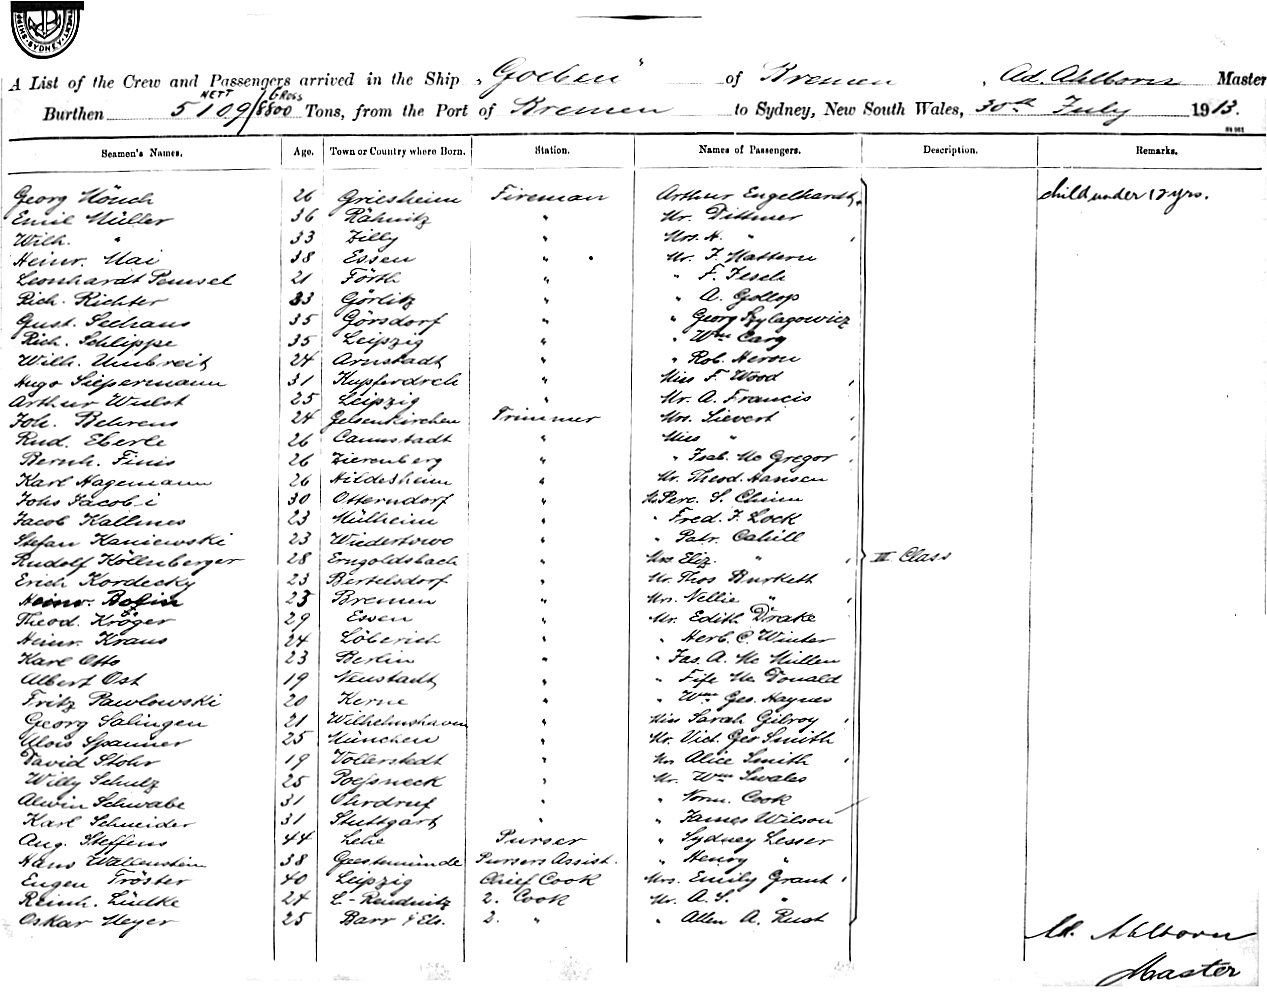 SHIPPING
SYDNEY
A List of the Crew and Passengers arrived in the Ship "Goeben" of Bremen, Ad. Ahlborn Master
NETT GROSS
Burthen 5109/8800 Tons, from the Port of Bremen to Sydney, New South Wales, 30th July 1913.
Seamen's Names. Age. Town or Country where Born. Station. Names of Passengers. Description. Remarks.
Georg Mönch 26 Griesheim Fireman Arthur Engelhardt, child under 12 yrs.
Emil Müller 36 Rähnitz " Mr. Dittmer
Wilh. " 33 Zilly " Mrs. H. "
Heinr. Mai 38 Essen " Mr. F. Mattern
Leonhardt Pemsel 21 Förth " " F. Tesch
Rich. Richter 33 Görlitz " " A. Gollop
Gust. Seehaus 35 Görsdorf " " Georg Szylagowicz
Rich. Schlippe 35 Leipzig " " Wm Carg
Wilh. Umbreit 24 Arnstadt " " Rob. Heron
Hugo Siepermann 31 Kupferdreh " Miss F. Wood
Arthur Wulst 25 Leipzig " Mr. A. Francis
Joh. Behrens 24 Gelsenkirchen Trimmer Mrs. Sievert
Rud. Eberle 26 Cannstadt " Miss "
Bernh. Finis 26 Zierenberg " " Isab. Mc Gregor
Karl Hagemann 26 Hildesheim " Mr. Theod. Hansen
Johs Jacobi 30 Otterndorf " Perc. S.
Jacob Kallmes 23 Mülheim " " Fred. F. Lock
Stefan Kaniewski 23 Wiedertowo " " Patr. Cahill
Rudolf Köllnberger 28 Ergoldsbach " Mrs. Eliz. " III Class
Erich Kordecky 23 Bertelsdorf " Mr. Thos Burketh
Heinr. 23 Bremen " Mrs. Nellie "
Theod. Kröger 29 Essen " Mr. Edith Drake
Heinr. Kraus 24 Löberich " " Herb. C. Winter
Karl Otto 23 Berlin " " Jas. A. Mc Mullen
Albert Ost 19 Neustadt " " Fife Mc Donald
Fritz Pawlowski 20 Herne " " Wm Geo. Haynes
Georg Salingen 21 Wilhelmshaven " Miss Sarah Gilroy
Alois Spanner 25 München " Mr. Vict. Geo Smith
David Stohr 19 Vollerstedt " Mrs Alice Smith
Willy Schulz 25 Poessneck " Mr. Wm Swales
Alwin Schwabe 31 Ohrdruf " " Norm. Cook
Karl Schneider 31 Stuttgart " " James Wilson
Aug. Steffens 44 Lehe Purser " Sydney Lesser
Hans Wallenstein 38 Geestemünde Pursers Assist. " Henry "
Eugen Tröster 40 Leipzig Chief Cook Mrs. Emily Grant
Reinh. Lüttke 24 L.-Reudnitz 2. Cook Mr. A. S. "
Oskar Meyer 25 Barr i/Els. 2. " " Allen A. Rust
Ad. Ahlborn
Master